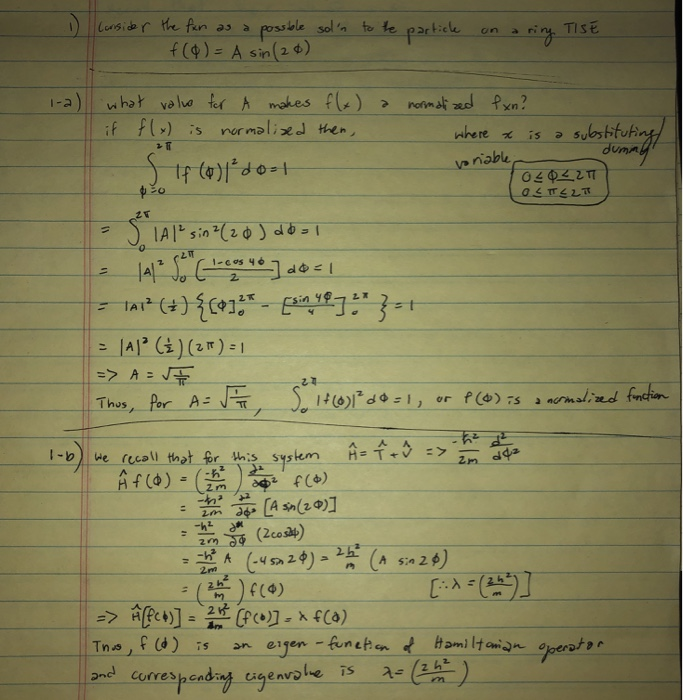 1) Consider the fxn as a possible sol'n to the particle on a ring TISE
f(φ) = A sin(2φ)
1-a) what value for A makes f(x) a normalized fxn?
if f(x) is normalized then, where x is a substituting/dummy variable
∫_{φ=0}^{2π} |f(φ)|² dφ = 1
0 ≤ φ ≤ 2π
0 ≤ π ≤ 2π
= ∫_0^{2π} |A|² sin²(2φ) dφ = 1
= |A|² ∫_0^{2π} [(1-cos 4φ)/2] dφ = 1
= |A|² (1/2) {[φ]_0^{2π} - [sin 4φ/4]_0^{2π}} = 1
= |A|² (1/2)(2π) = 1
=> A = √(1/π)
Thus, for A = √(1/π), ∫_0^{2π} |f(φ)|² dφ = 1, or f(φ) is a normalized function
1-b) We recall that for this system Ĥ = T̂ + V̂ => -ħ²/2m d²/dφ²
Ĥ f(φ) = (-ħ²/2m) ∂²/∂φ² f(φ)
= -ħ²/2m ∂²/∂φ² [A sin(2φ)]
= -ħ²/2m ∂/∂φ (2cos2φ)
= -ħ²/2m A (-4 sin 2φ) = 2ħ²/m (A sin 2φ)
= (2ħ²/m) f(φ) [∴ λ = (2ħ²/m)]
=> Ĥ[f(φ)] = 2ħ²/m [f(φ)] = λ f(φ)
Thus, f(φ) is an eigen-function of Hamiltonian operator
and corresponding eigenvalue is λ = (2ħ²/m)